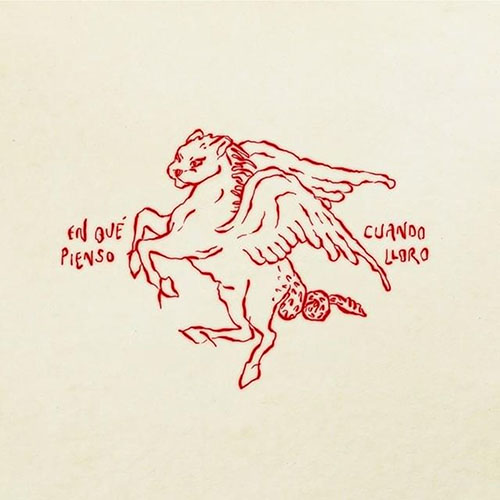 EN QUÉ
PIENSO
CUANDO
LLORO